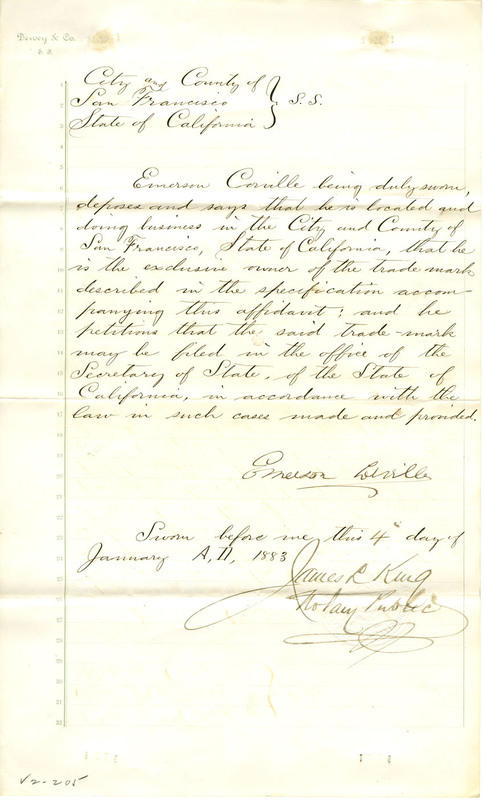 Dewey & Co.
S. F.
City and County of
San Francisco } S.S.
State of California
Emerson Corville being duly sworn,
deposes and says that he is located and
doing business in the City and County of
San Francisco, State of California, that he
is the exclusive owner of the trade mark
described in the specification accom-
panying this affidavit; and he
petitions that the said trade-mark
may be filed in the office of the
Secretary of State, of the State of
California, in accordance with the
law in such cases made and provided.
Emerson
Sworn before me this 4" day of
January A,D, 1883
James L King
Notary Public
V2-205